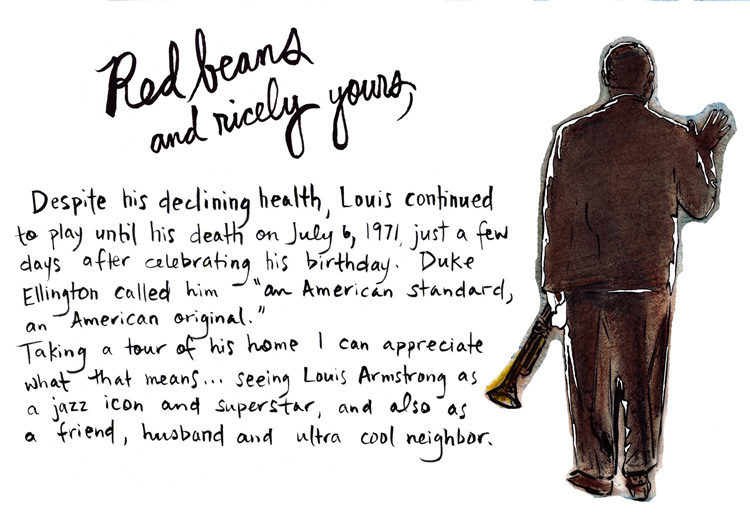 Red beans
and ricely yours,
Despite his declining health, Louis continued
to play until his death on July 6, 1971, just a few
days after celebrating his birthday. Duke
Ellington called him - "an American standard,
an American original."
Taking a tour of his home I can appreciate
what that means... seeing Louis Armstrong as
a jazz icon and superstar, and also as
a friend, husband and ultra cool neighbor.